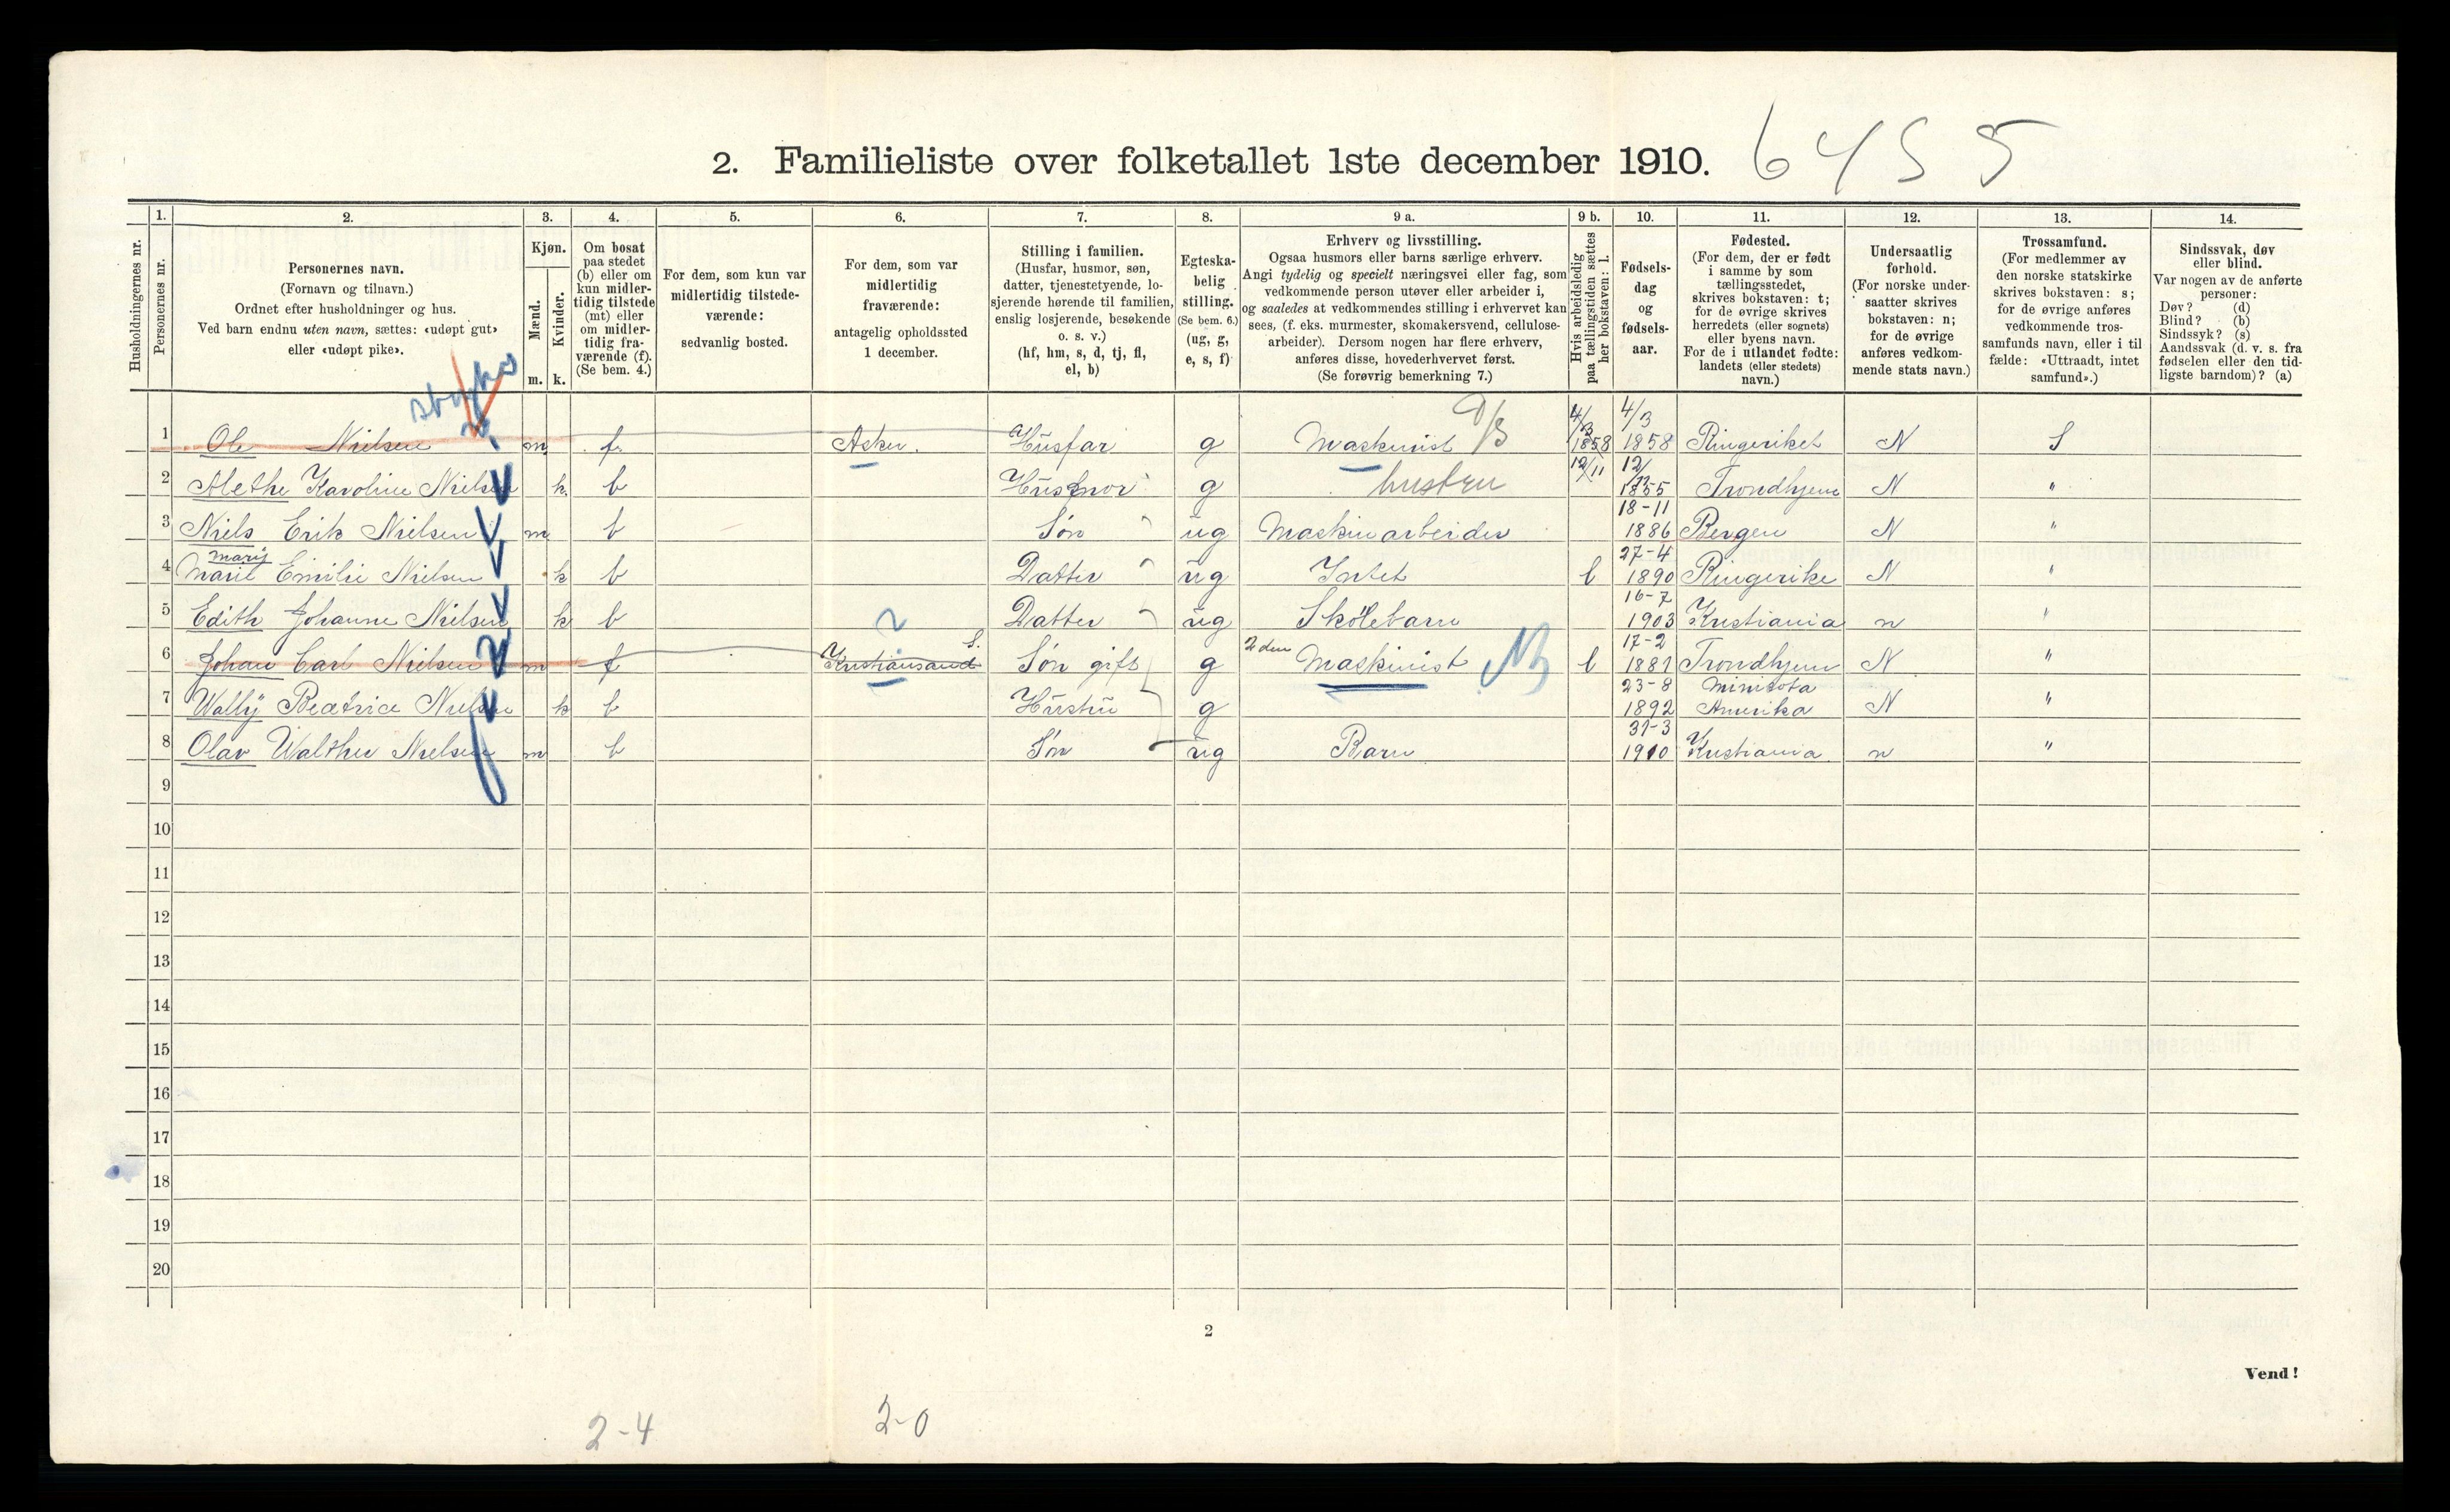 2. Familieliste over folketallet 1ste december 1910. 6455
1. 2. 3. 4. 5. 6. 7. 8. 9 a. 9 b. 10. 11. 12. 13. 14.
Husholdningernes nr.
Personernes nr.
Personernes navn.
(Fornavn og tilnavn.)
Ordnet efter husholdninger og hus.
Ved barn endnu uten navn, sættes: «udøpt gut»
eller «udøpt pike».
Kjøn.
Mænd.
Kvinder.
m. k.
Om bosat
paa stedet
(b) eller om
kun midler-
tidig tilstede
(mt) eller
om midler-
tidig fra-
værende (f).
(Se bem. 4.)
For dem, som kun var
midlertidig tilstede-
værende:
sedvanlig bosted.
For dem, som var
midlertidig
fraværende:
antagelig opholdssted
1 december.
Stilling i familien.
(Husfar, husmor, søn,
datter, tjenestetyende, lo-
sjerende hørende til familien,
enslig losjerende, besøkende
o. s. v.)
(hf, hm, s, d, tj, fl,
el, b)
Egteska-
belig
stilling.
(Se bem. 6.)
(ug, g,
e, s, f)
Erhverv og livsstilling.
Ogsaa husmors eller barns særlige erhverv.
Angi tydelig og specielt næringsvei eller fag, som
vedkommende person utøver eller arbeider i,
og saaledes at vedkommendes stilling i erhvervet kan
sees, (f. eks. murmester, skomakersvend, cellulose-
arbeider). Dersom nogen har flere erhverv,
anføres disse, hovederhvervet først.
(Se forøvrig bemerkning 7.)
Hvis arbeidsledig
paa tællingstiden sættes
her bokstaven: l.
Fødsels-
dag
og
fødsels-
aar.
Fødested.
(For dem, der er født
i samme by som
tællingsstedet,
skrives bokstaven: t;
for de øvrige skrives
herredets (eller sognets)
eller byens navn.
For de i utlandet fødte:
landets (eller stedets)
navn.)
Undersaatlig
forhold.
(For norske under-
saatter skrives
bokstaven: n;
for de øvrige
anføres vedkom-
mende stats navn.)
Trossamfund.
(For medlemmer av
den norske statskirke
skrives bokstaven: s;
for de øvrige anføres
vedkommende tros-
samfunds navn, eller i til
fælde: «Uttraadt, intet
samfund».)
Sindssvak, døv
eller blind.
Var nogen av de anførte
personer:
Døv? (d)
Blind? (b)
Sindssyk? (s)
Aandssvak (d. v. s. fra
fødselen eller den tid-
ligste barndom)? (a)
strykes
1 Ole Nielsen m f. Asker. Husfar g Maskinist 4/3 1858 4/3 1858 Ringeriket N S
2 Alethe Karoline Nielsen k. b Husmor g hustru 12/11 12/11 1855 Trondhjem N "
3 Niels Erik Nielsen m b Søn ug Maskinarbeider 18-11 1886 Bergen N "
mary
4 Marie Emilie Nielsen k b Datter ug Intet l 27-4 1890 Ringerike N "
5 Edith Johanne Nielsen k b Datter ug Skolebarn 16-7 1903 Kristiania n "
6 Johan Carl Nielsen m f Kristiansand S. Søn gift g 2den Maskinist l 17-2 1881 Trondhjem N "
7 Wally Beatrice Nielsen k b Hustru g 23-8 1892 Minisota Amerika N "
8 Olav Walther Nielsen m b Søn ug Barn 31-3 1910 Kristiania. n "
9
10
11
12
13
14
15
16
17
18
19
20
2
Vend!
2-4 2-0